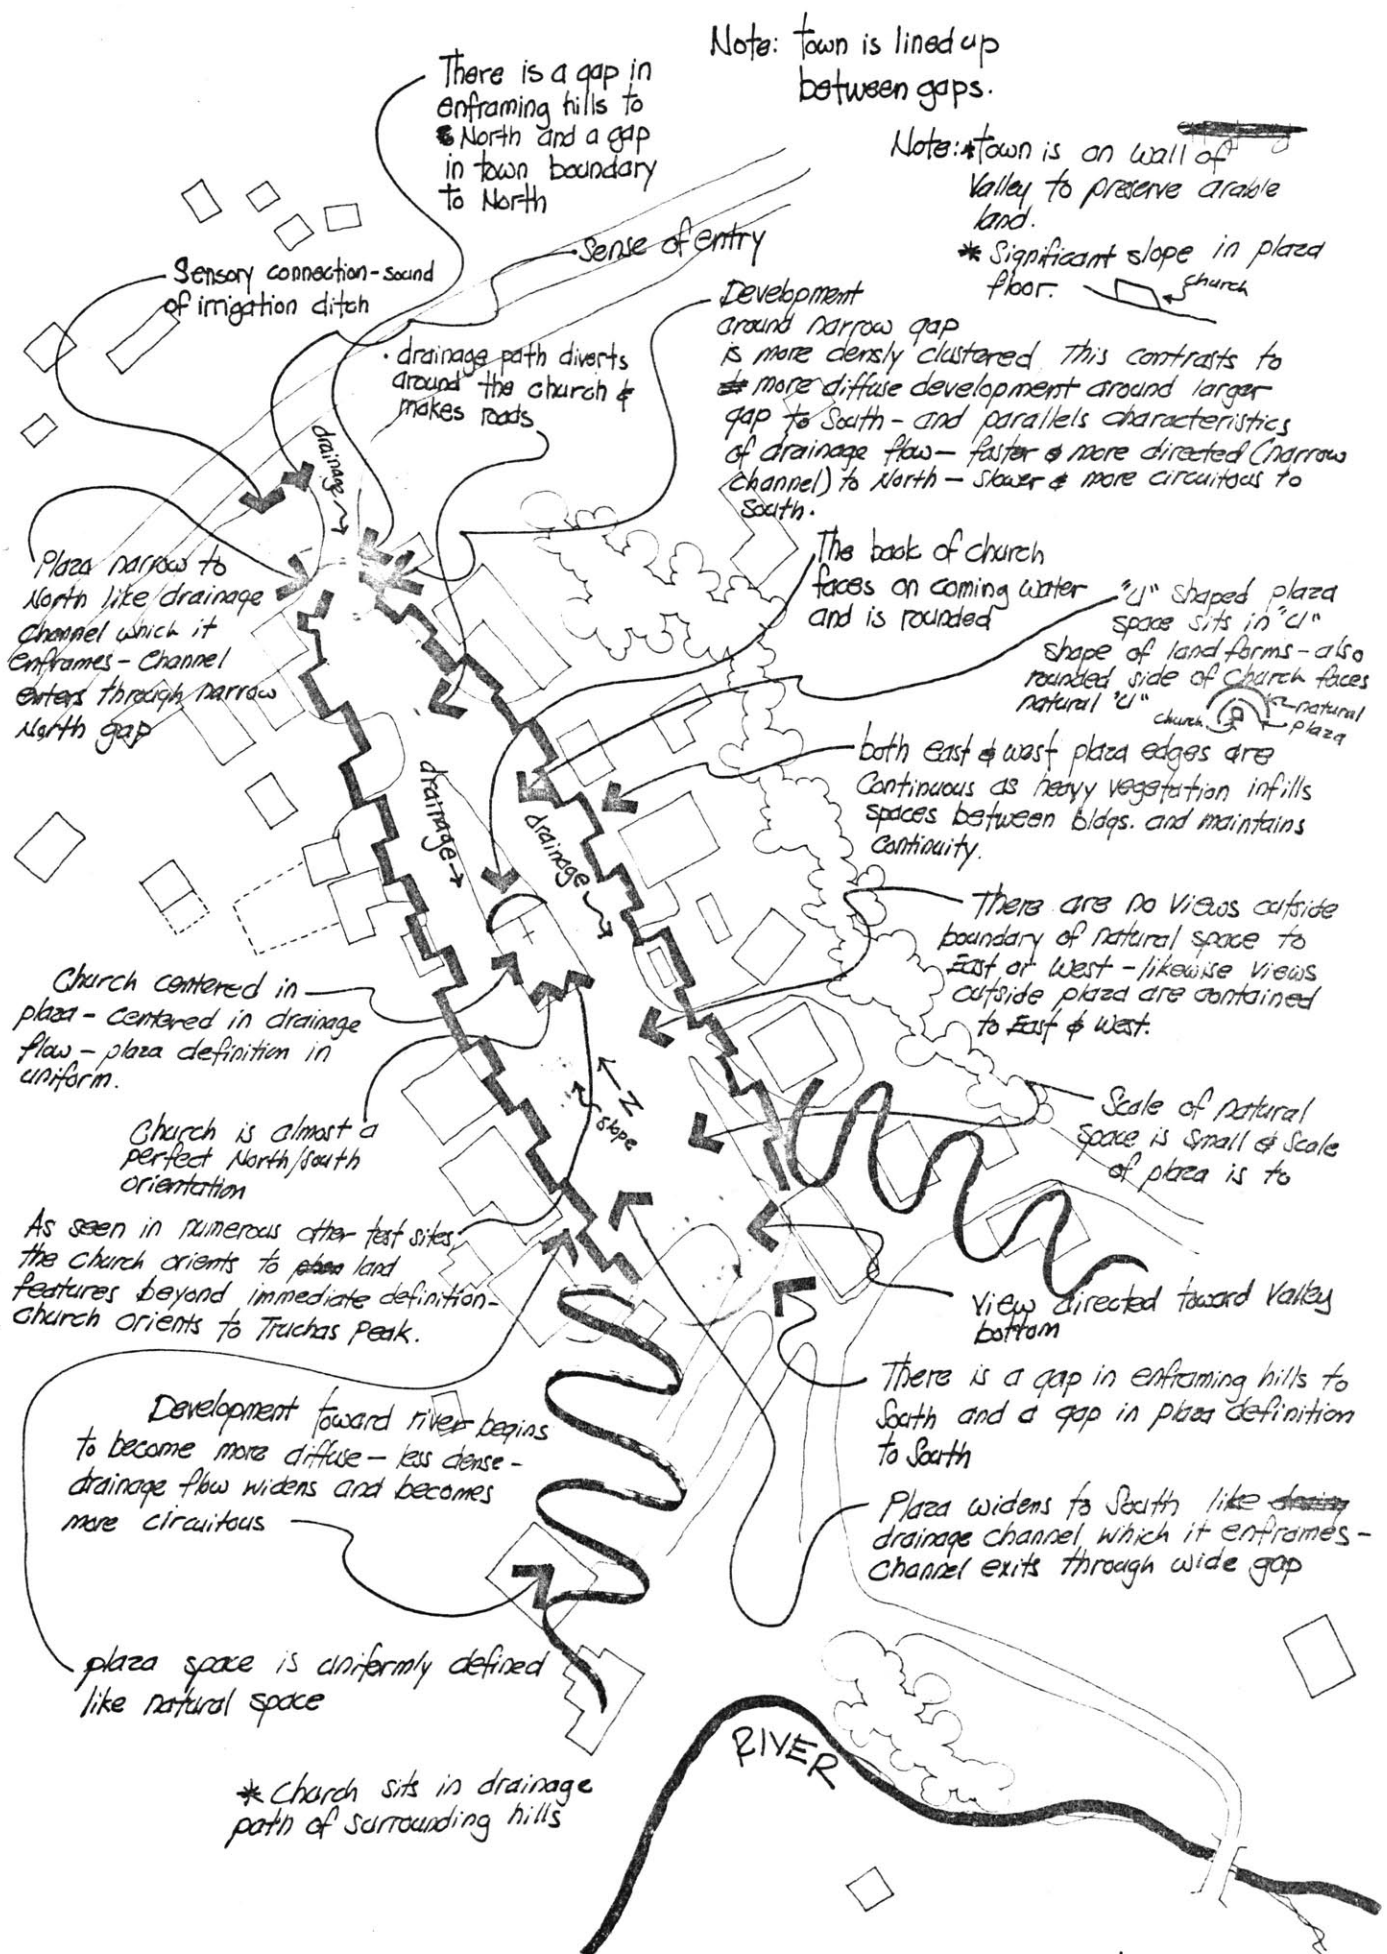 Note: town is lined up
between gaps.
There is a gap in
enframing hills to
North and a gap
in town boundary
to North
Note: *town is on wall of
Valley to preserve arable
land.
* Significant slope in plaza
floor.
church
Sense of entry
Sensory connection - sound
of irrigation ditch
Development
around narrow gap
is more densly clustered. This contrasts to
more diffuse development around larger
gap to South - and parallels characteristics
of drainage flow - faster & more directed (narrow
channel) to North - slower & more circuitous to
South.
· drainage path diverts
around the church &
makes roads
drainage
Plaza narrow to
North like drainage
Channel which it
enframes - Channel
enters through narrow
North gap
The back of church
faces on coming water
and is rounded
"U" shaped plaza
space sits in "U"
shape of land forms - also
rounded side of Church faces
natural "U"
church
natural
plaza
both east & west plaza edges are
Continuous as heavy vegetation infills
spaces between bldgs. and maintains
continuity.
drainage
drainage
There are no Views outside
boundary of natural space to
East or West - likewise views
outside plaza are contained
to East & West.
Church centered in
plaza - centered in drainage
flow - plaza definition in
uniform.
N
slope
Scale of natural
space is small & scale
of plaza is to
Church is almost a
perfect North/South
orientation
As seen in numerous other test sites,
the church orients to land
features beyond immediate definition -
church orients to Truchas Peak.
View directed toward Valley
bottom
There is a gap in enframing hills to
South and a gap in plaza definition
to South
Development toward river begins
to become more diffuse - less dense -
drainage flow widens and becomes
more circuitous
Plaza widens to South like
drainage channel which it enframes -
Channel exits through wide gap
plaza space is uniformly defined
like natural space
RIVER
* Church sits in drainage
path of surrounding hills